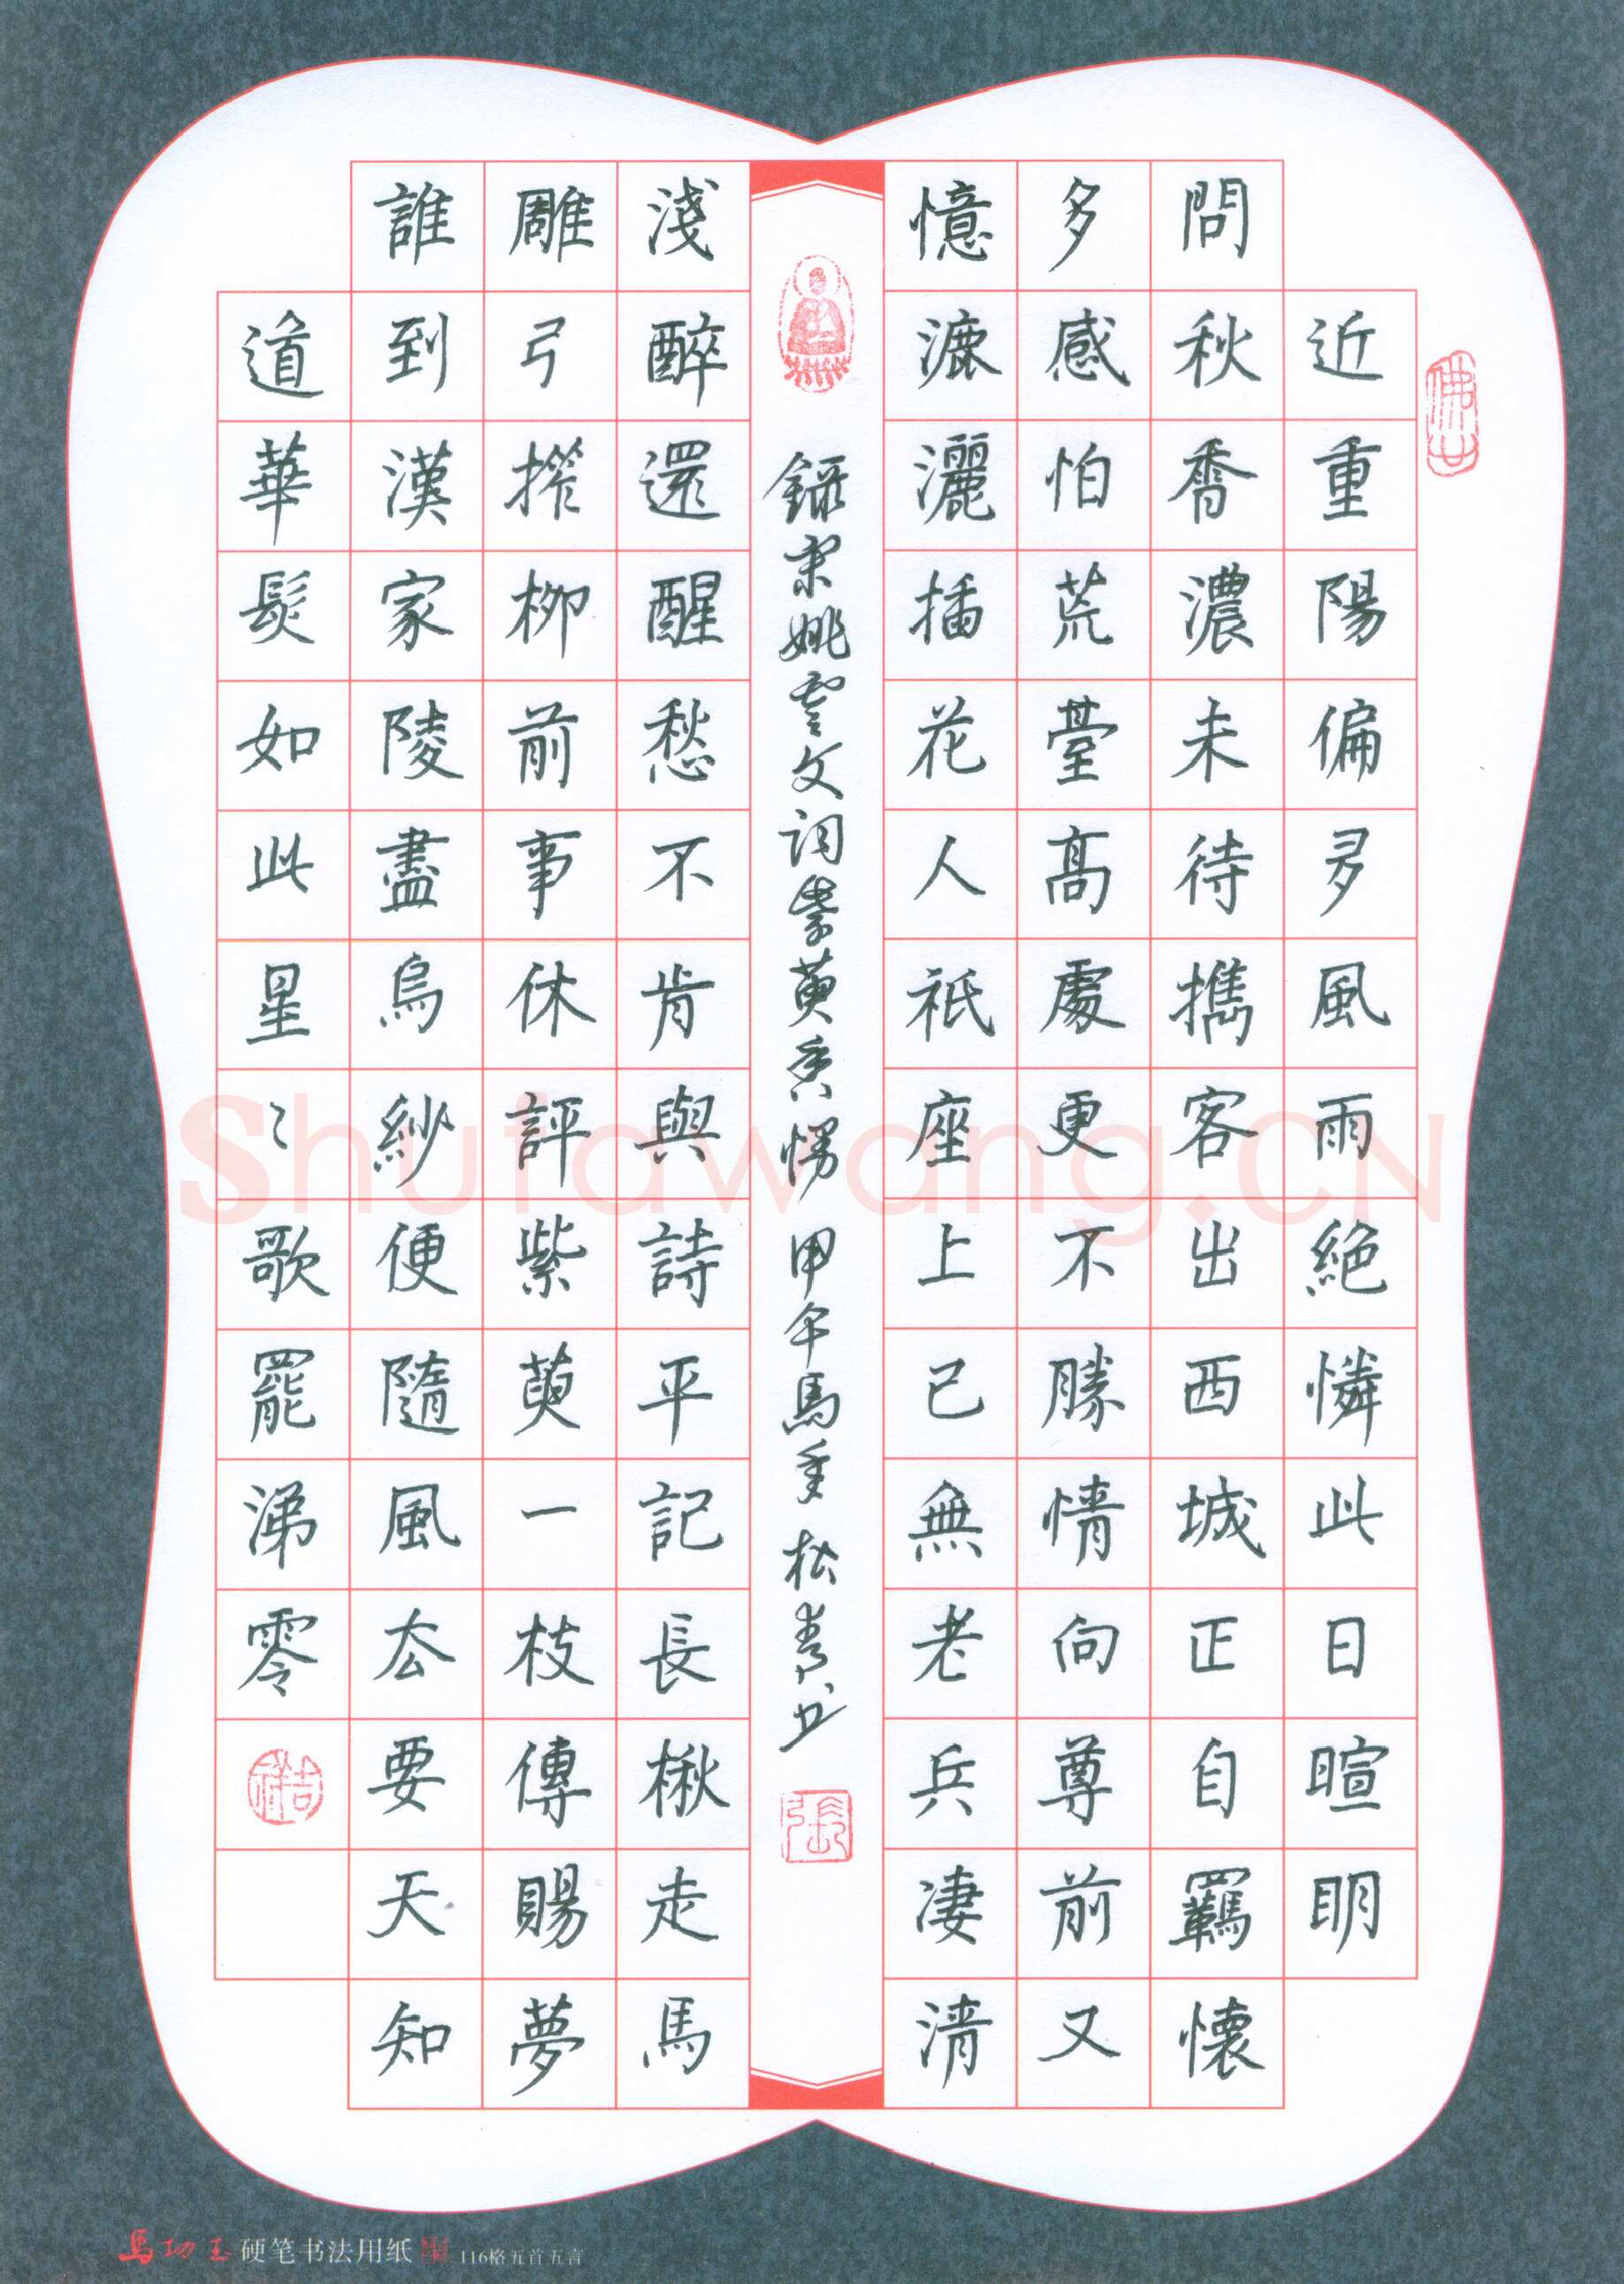 近重陽偏多風雨絕憐此日暄明
問秋香濃未待攜客出西城正自羈懷
多感怕荒臺高處更不勝情向尊前又
憶漉灑插花人祇座上已無老兵淒清
淺醉還醒愁不肯與詩平記長楸走馬
雕弓搾柳前事休評紫萸一枝傳賜夢
誰到漢家陵盡烏紗便隨風去要天知
道華髮如此星〻歌罷涕零
錄宋姚雲文詞紫萸香慢 甲午馬年 松青书
佛山
吉祥
張
Shufawang.CN
馬功玉 硬笔书法用纸 116格五首五言